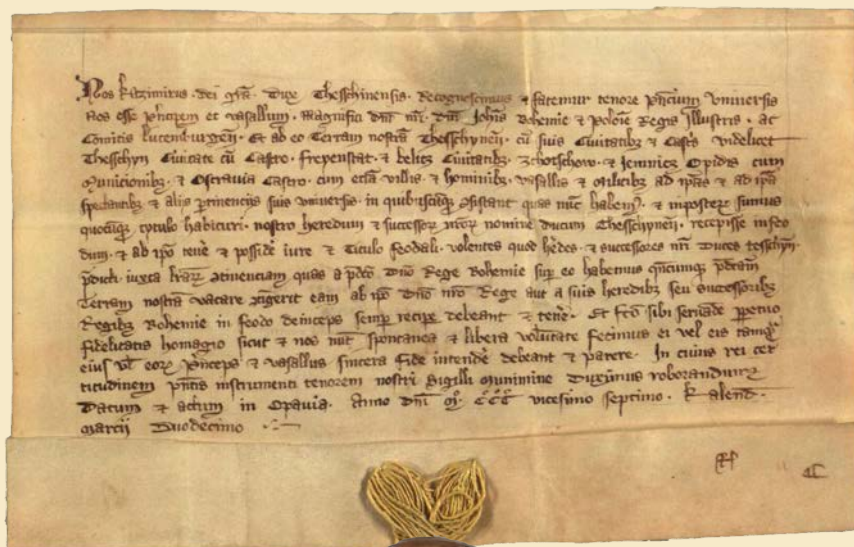 Nos kazimirus · dei gra͞ · Dux Thesschinensis · Recognoscimus ⁊ fatemur tenore p͞nciu͞m Universis
Nos esse p͞ncipem et vasallum · Magnifici Dn͞i nr͞i · Dn͞i Joh͞is Bohemie ⁊ Polo͞ie Regis Illustris · ac
Comitis lucemburgen͞ · Et ab eo Terram nostra͞ Thesschynen͞ · cu͞ suis Civitatib⁊ ⁊ Cast͞s videlicet
Thesschyn Civitate cu͞ Castro · freyenstat · ⁊ belicz Civitatib⁊ · zchotschow · ⁊ Jemnicz Opidis cum
Municionib⁊ · ⁊ Ostravia Castro · cum eci͞a villis · ⁊ hominib⁊ · vasallis ⁊ Militib⁊ ad ip͞as ⁊ ad ip͞a
spectantib⁊ ⁊ alijs pertinencijs suis universis · in quibuscu͞q⁊ ꝯsistant quas nu͞c habem⁊ · ⁊ inposter⁊ sumus
quocu͞q⁊ tytulo habituri · nostro heredum ⁊ successor⁊ nr͞or⁊ nomine ducum Thesschynen͞ · recepisse in feo
dum · ⁊ ab ip͞o tene͞r ⁊ posside͞r iure ⁊ Titulo feodali · volentes quod h͞edes · ⁊ successores nr͞i Duces tesschyn͞ ·
p͞dicti · iuxta l͞rar⁊ ꝯtinenciam quas a p͞dc͞o Dn͞o Rege Bohemie sup͞ eo habemus q͞ncumq⁊ p͞dc͞am
Terram nostra͞ vacare ꝯtigerit eam ab ip͞o Dn͞o nr͞o Rege aut a suis heredib⁊ seu successorib⁊
Regib⁊ Bohemie in feodo deinceps semp͞ recip͞e debeant ⁊ tene͞r · Et fc͞o sibi servande p͞petuo
fidelitatis homagio sicut ⁊ nos nu͞c spontanea ⁊ libera volu͞tate fecimus ei vel eis tamq͞
eius vl͞ eor⁊ p͞nceps ⁊ vasallus sincera fide intende͞r debeant ⁊ parere · In cuius rei cer
titudinem p͞ntis instrumenti tenorem nostri sigilli Munimine Duximus roborandum
Datum ⁊ actum in Opavia · Anno Dn͞i M° · CCC° vicesimo septimo · kalend͞ ·
Marcii Duodecimo